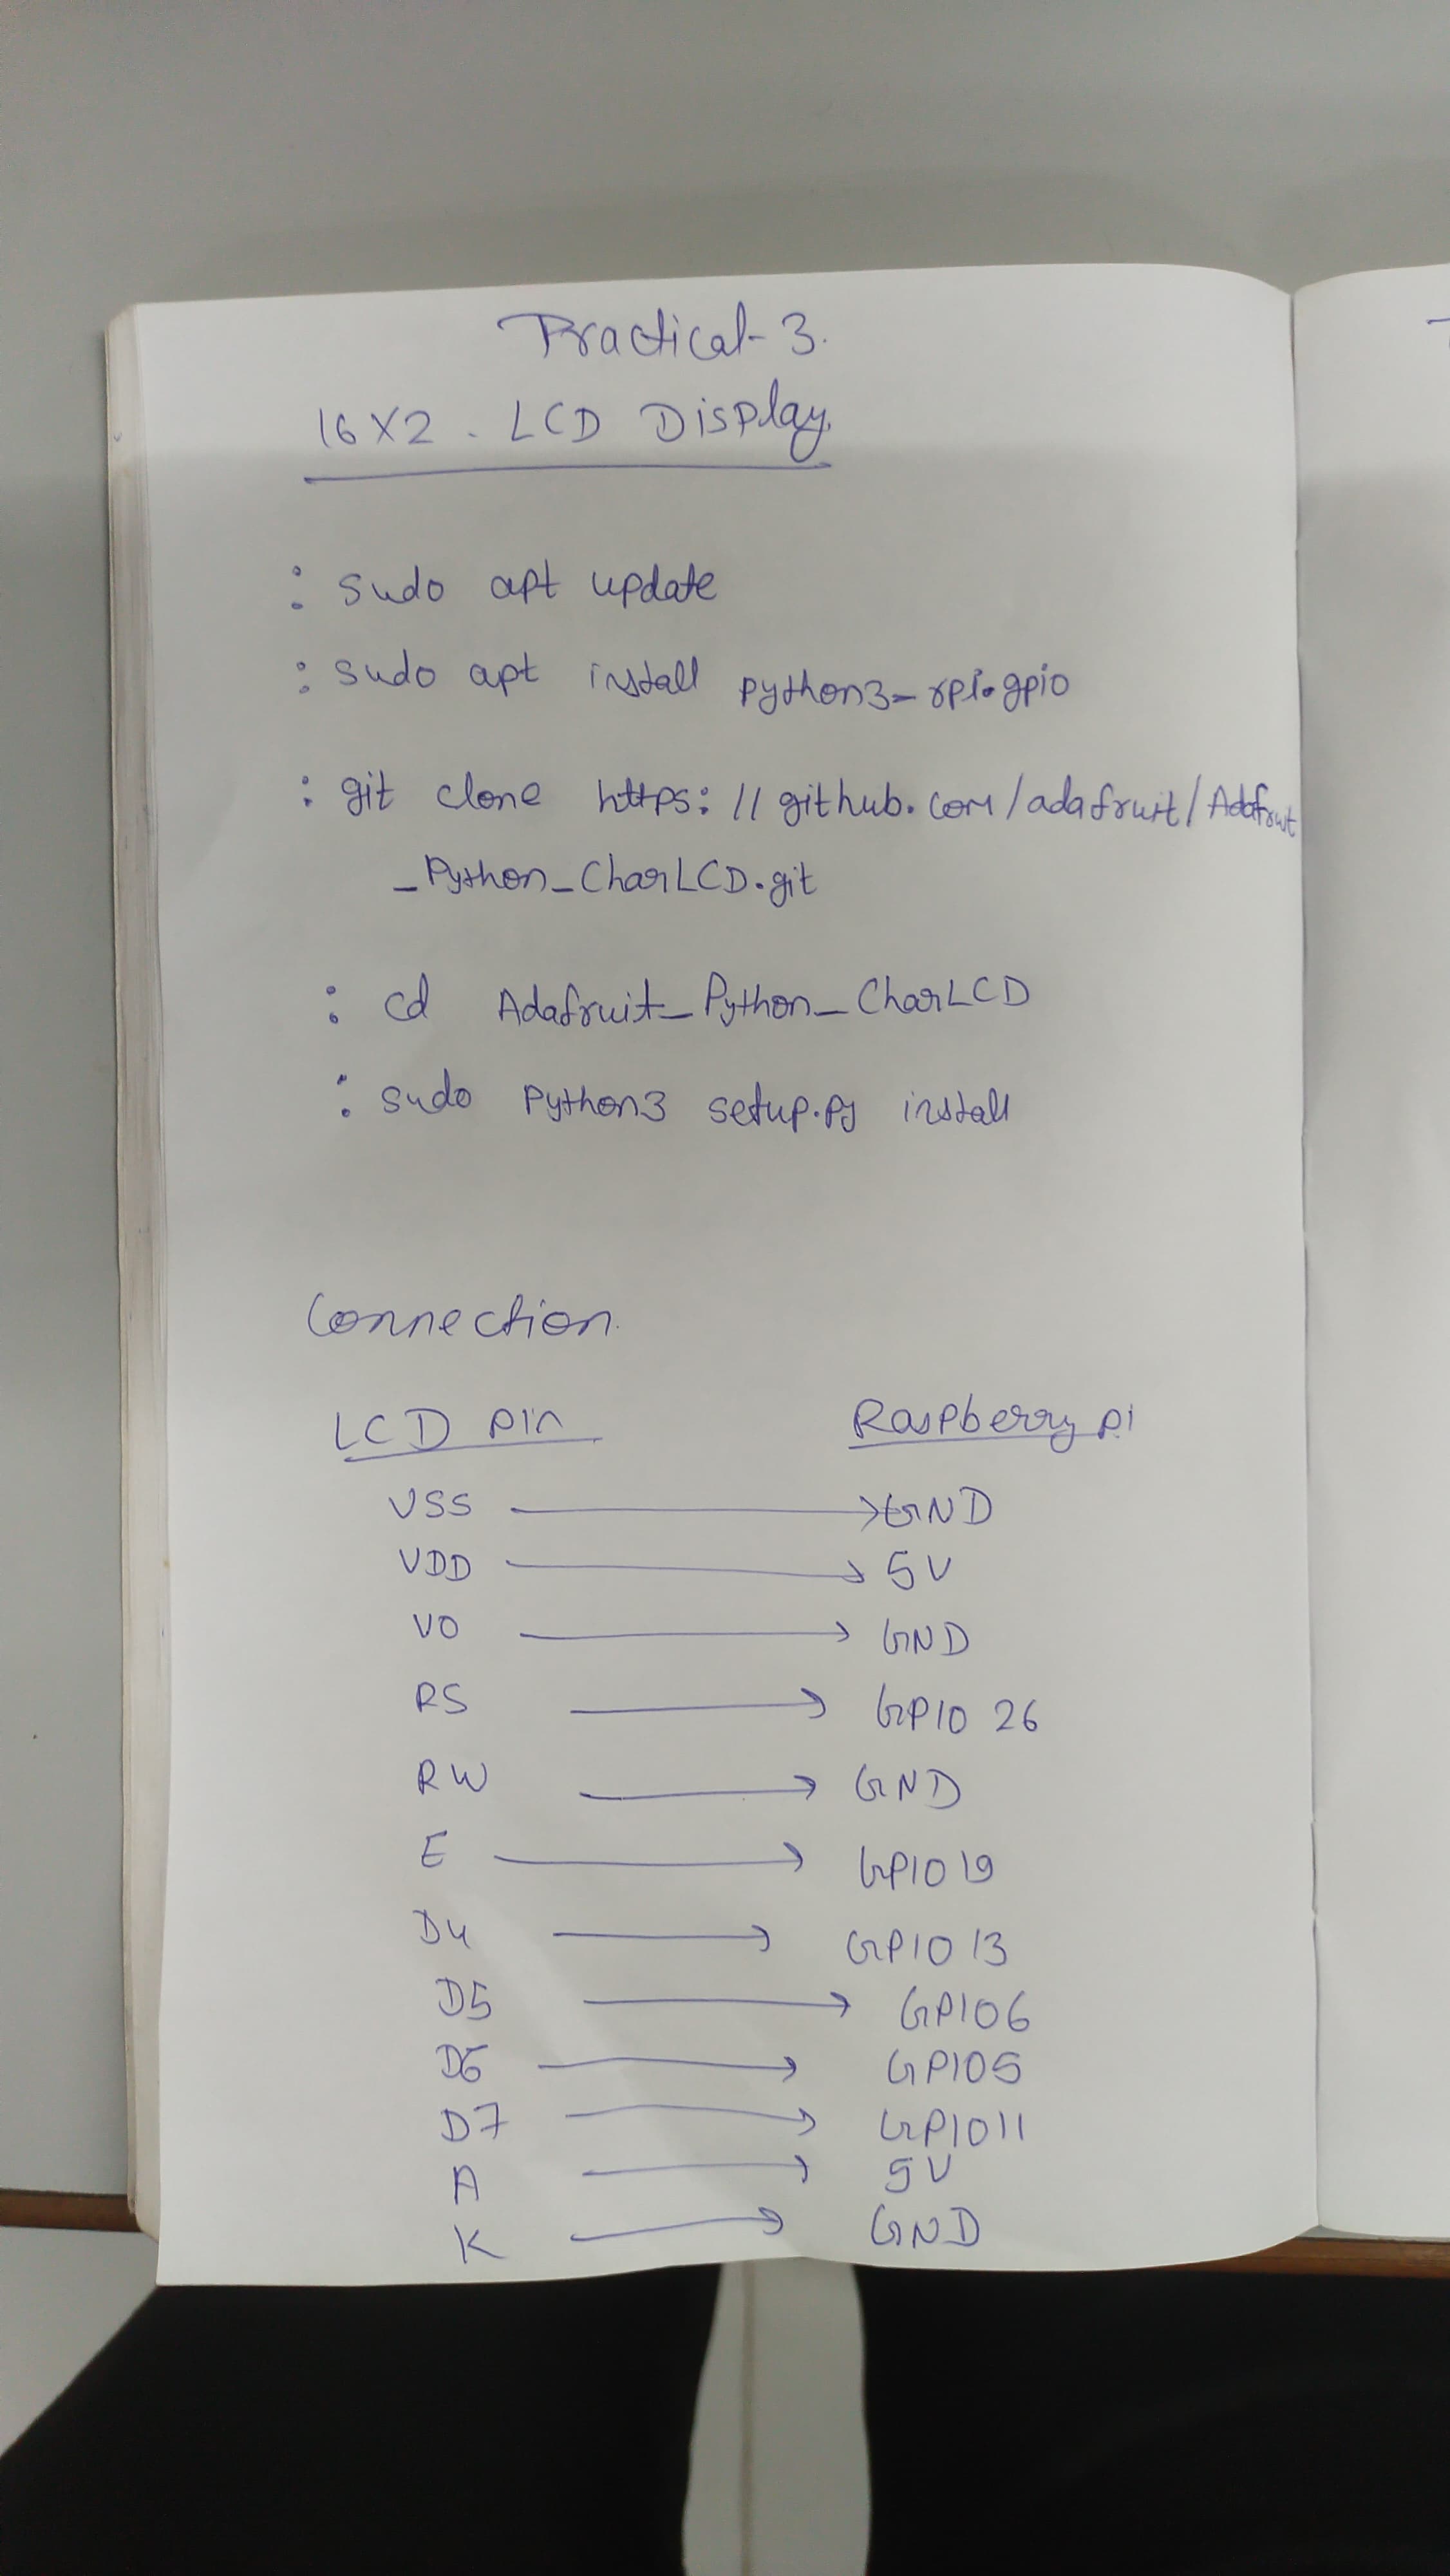 Practical-3.
16X2. LCD Display
: sudo apt update
: sudo apt install python3-rpi.gpio
: git clone https://github.com/adafruit/Adafruit
_Python_CharLCD.git
: cd Adafruit_Python_CharLCD
: sudo Python3 setup.py install
Connection.
LCD pin Raspberry pi
VSS → GND
VDD → 5V
VO → GND
RS → GPIO 26
RW → GND
E → GPIO 19
D4 → GPIO 13
D5 → GPIO6
D6 → GPIO5
D7 → GPIO11
A → 5V
K → GND